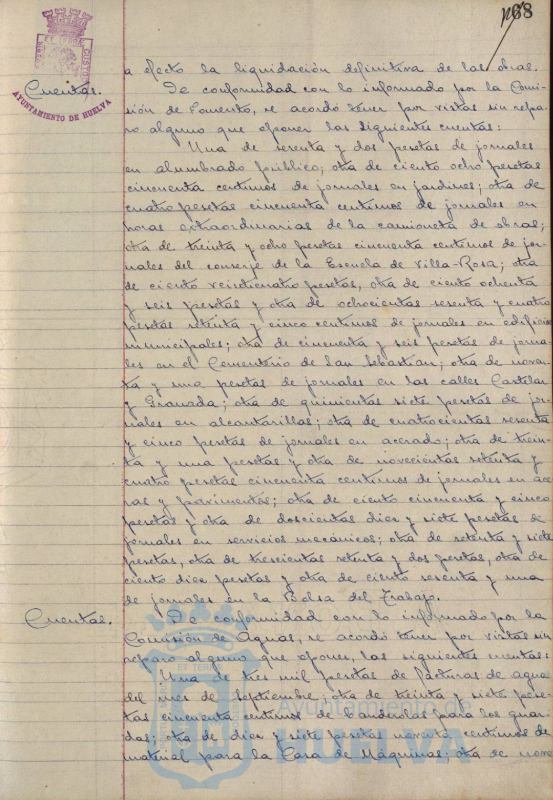 168
a efecto la liquidación definitiva de las obras.
Cuentas.
De conformidad con lo informado por la Comi-
sión de Fomento, se acordó tener por vistas sin repa-
ro alguno que oponer las siguientes cuentas:
Una de sesenta y dos pesetas de jornales
en alumbrado público; otra de ciento ocho pesetas
cincuenta centimos de jornales en jardines; otra de
cuatro pesetas cincuenta centimos de jornales en
horas extraordinarias de la camioneta de obras;
otra de treinta y ocho pesetas cincuenta centimos de jor-
nales del conserje de la Escuela de Villa-Rosa; otra
de ciento veinticuatro pesetas, otra de ciento ochenta
y seis pesetas y otra de ochocientas sesenta y cuatro
pesetas setenta y cinco centimos de jornales en edificios
municipales; otra de cincuenta y seis pesetas de jorna-
les en el Cementerio de San Sebastian; otra de noven-
ta y una pesetas de jornales en las calles Castelar
y Granada; otra de quinientas siete pesetas de jor-
nales en alcantarillas; otra de cuatrocientas sesenta
y cinco pesetas de jornales en acerado; otra de trein-
ta y una pesetas y otra de novecientas setenta y
cuatro pesetas cincuenta centimos de jornales en ace-
ras y pavimentos; otra de ciento cincuenta y cinco
pesetas y otra de doscientas diez y siete pesetas de
jornales en servicios mecánicos; otra de setenta y siete
pesetas, otra de trescientas setenta y dos pesetas, otra de
ciento diez pesetas y otra de ciento sesenta y una
de jornales en la Bolsa del Trabajo.
Cuentas.
De conformidad con lo informado por la
Comisión de Aguas, se acordó tener por vistas sin
reparo alguno que oponer, las siguientes cuentas:
Una de tres mil pesetas de facturas de agua
del mes de Septiembre; otra de treinta y siete pese-
tas cincuenta centimos de banderolas para los guar-
das; otra de diez y siete pesetas noventa centimos de
material para la Casa de Máquinas; otra de nove
AYUNTAMIENTO DE HUELVA
Ayuntamiento de
HUELVA